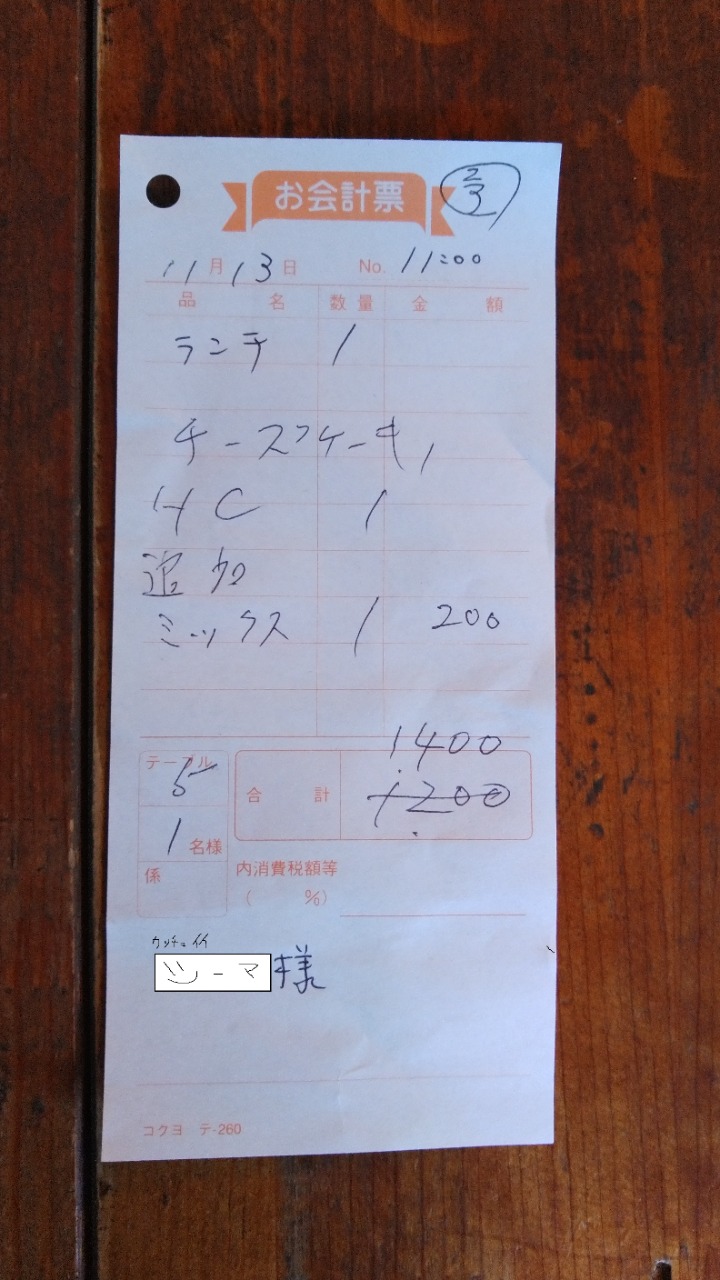 お会計票
2/3
11月13日 No. 11:00
品名 数量 金額
ランチ 1
チーズケーキ 1
HC 1
追加
ミックス 1 200
1400
テーブル 5
合計 1200
1名様
係
内消費税額等
( %)
ツーマ様
コクヨ テ-260